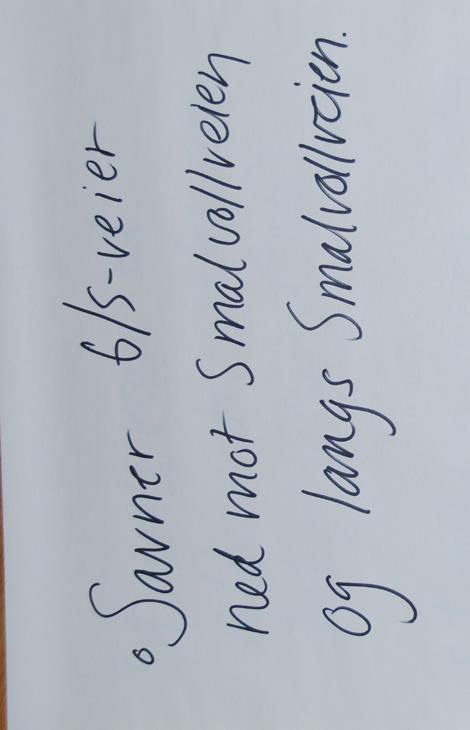 ° Savner G/S-veier
ned mot Smalvollveien
og langs Smalvollveien.